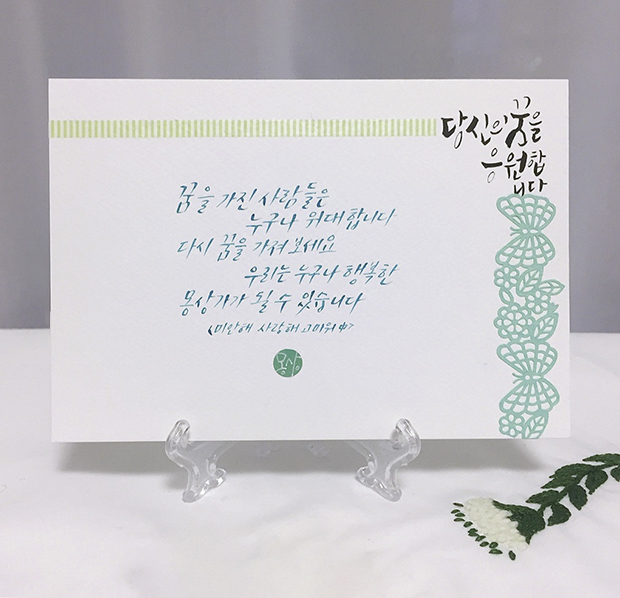 당신의 꿈을
응원합
니다
꿈을 가진 사람들은
누구나 위대합니다
다시 꿈을 가져 보세요
우리는 누구나 행복한
몽상가가 될 수 있습니다
<미안해 사랑해 고마워 中>
몽상